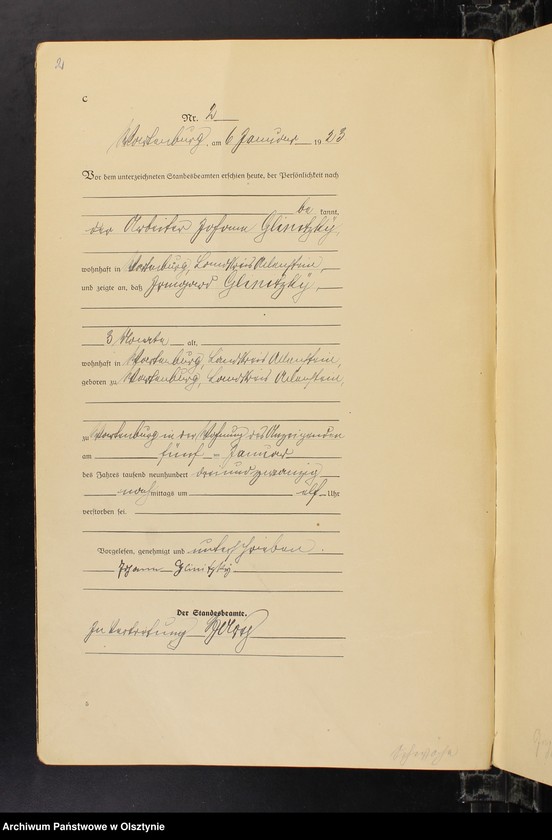 2
C
Nr. 2
Wartenburg, am 6 Januar 1923
Vor dem unterzeichneten Standesbeamten erschien heute, der Persönlichkeit nach
be kannt,
der Arbeiter Johann Glinitzky,
wohnhaft in Wartenburg, Landkreis Allenstein,
und zeigte an, daß Irmgard Glinitzky,
3 Monate alt,
wohnhaft in Wartenburg, Landkreis Allenstein,
geboren zu Wartenburg, Landkreis Allenstein,
zu Wartenburg in der Wohnung des Anzeigenden
am fünf - Januar
des Jahres tausend neunhundert dreiundzwanzig
nachmittags um elf Uhr
verstorben sei.
Vorgelesen, genehmigt und unterschrieben.
Johann Glinitzky
Der Standesbeamte.
In Vertretung
Schwäche
Archiwum Państwowe w Olsztynie